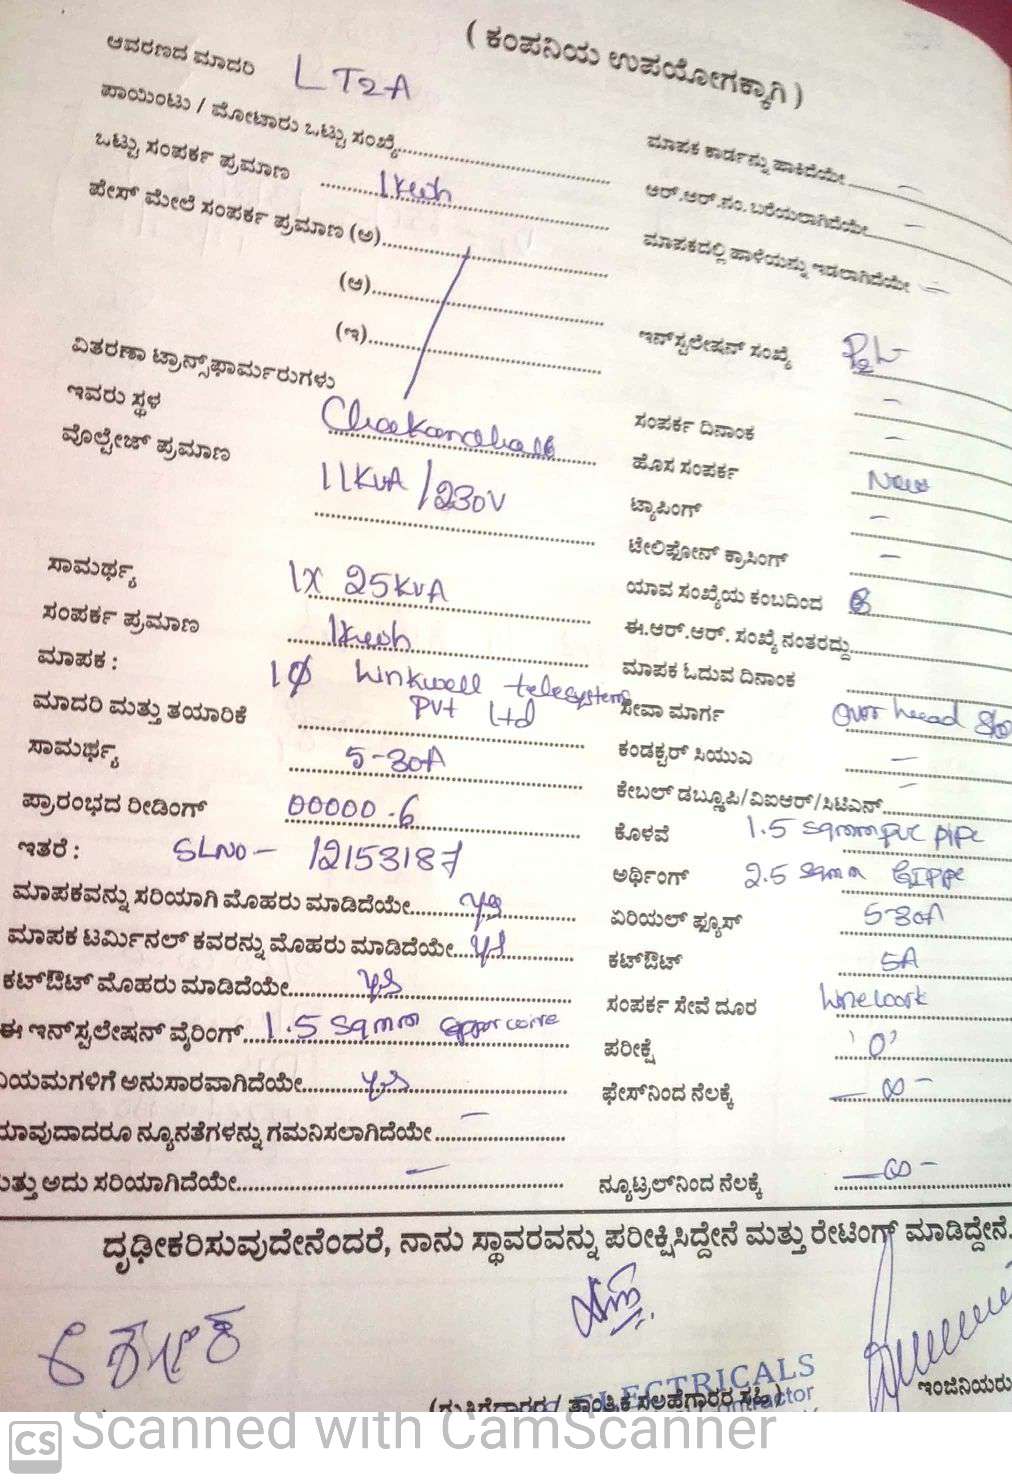 ( ಕಂಪನಿಯ ಉಪಯೋಗಕ್ಕಾಗಿ )
ಆವರಣದ ಮಾದರಿ LT2A
ಪಾಯಿಂಟು / ಮೋಟಾರು ಒಟ್ಟು ಸಂಖ್ಯೆ
ಒಟ್ಟು ಸಂಪರ್ಕ ಪ್ರಮಾಣ 1kwh
ಪೇಸ್ ಮೇಲೆ ಸಂಪರ್ಕ ಪ್ರಮಾಣ (ಅ)
(ಆ)
(ಇ)
ವಿತರಣಾ ಟ್ರಾನ್ಸ್‌ಫಾರ್ಮರುಗಳು
ಇವರು ಸ್ಥಳ
ವೊಲ್ಟೇಜ್ ಪ್ರಮಾಣ 11KVA / 230V
ಸಾಮರ್ಥ್ಯ 1X 25KVA
ಸಂಪರ್ಕ ಪ್ರಮಾಣ 1kwh
ಮಾಪಕ : 1Ø Linkwell telesystems
ಮಾದರಿ ಮತ್ತು ತಯಾರಿಕೆ Pvt Ltd
ಸಾಮರ್ಥ್ಯ 5-30A
ಪ್ರಾರಂಭದ ರೀಡಿಂಗ್ 00000.6
ಇತರೆ : SLNO - 12153187
ಮಾಪಕವನ್ನು ಸರಿಯಾಗಿ ಮೊಹರು ಮಾಡಿದೆಯೇ yes
ಮಾಪಕ ಟರ್ಮಿನಲ್ ಕವರನ್ನು ಮೊಹರು ಮಾಡಿದೆಯೇ yes
ಕಟ್‌ಔಟ್ ಮೊಹರು ಮಾಡಿದೆಯೇ yes
ಈ ಇನ್‌ಸ್ಟಲೇಷನ್ ವೈರಿಂಗ್ 1.5 sqmm copper wire
ನಿಯಮಗಳಿಗೆ ಅನುಸಾರವಾಗಿದೆಯೇ yes
ಯಾವುದಾದರೂ ನ್ಯೂನತೆಗಳನ್ನು ಗಮನಿಸಲಾಗಿದೆಯೇ -
ಮತ್ತು ಅದು ಸರಿಯಾಗಿದೆಯೇ -
ಮಾಪಕ ಕಾರ್ಡನ್ನು ಹಾಕಿದೆಯೇ -
ಆರ್.ಆರ್.ನಂ. ಬರೆಯಲಾಗಿದೆಯೇ -
ಮಾಪಕದಲ್ಲಿ ಹಾಳೆಯನ್ನು ಇಡಲಾಗಿದೆಯೇ -
ಇನ್‌ಸ್ಟಲೇಷನ್ ಸಂಖ್ಯೆ
ಸಂಪರ್ಕ ದಿನಾಂಕ -
ಹೊಸ ಸಂಪರ್ಕ New
ಟ್ಯಾಪಿಂಗ್ -
ಟೇಲಿಫೋನ್ ಕ್ರಾಸಿಂಗ್ -
ಯಾವ ಸಂಖ್ಯೆಯ ಕಂಬದಿಂದ
ಈ.ಆರ್.ಆರ್. ಸಂಖ್ಯೆ ನಂತರದ್ದು
ಮಾಪಕ ಓದುವ ದಿನಾಂಕ
ಸೇವಾ ಮಾರ್ಗ Over head
ಕಂಡಕ್ಟರ್ ಸಿಯುಎ -
ಕೇಬಲ್ ಡಬ್ಲೂಪಿ/ವಿಐಆರ್/ಸಿಟಿಎನ್ -
ಕೊಳವೆ 1.5 sqmm pvc pipe
ಅರ್ಥಿಂಗ್ 2.5 sqmm GI Pipe
ಏರಿಯಲ್ ಫ್ಯೂಸ್ 5-30A
ಕಟ್‌ಔಟ್ 5A
ಸಂಪರ್ಕ ಸೇವೆ ದೂರ
ಪರೀಕ್ಷೆ '0'
ಫೇಸ್‌ನಿಂದ ನೆಲಕ್ಕೆ -∞-
ನ್ಯೂಟ್ರಲ್‌ನಿಂದ ನೆಲಕ್ಕೆ -∞-
ದೃಢೀಕರಿಸುವುದೇನೆಂದರೆ, ನಾನು ಸ್ಥಾವರವನ್ನು ಪರೀಕ್ಷಿಸಿದ್ದೇನೆ ಮತ್ತು ರೇಟಿಂಗ್ ಮಾಡಿದ್ದೇನೆ.
ELECTRICALS
(ಗುತ್ತಿಗೆದಾರರ / ತಾಂತ್ರಿಕ ಸಲಹೆಗಾರರ ಸಹಿ)
ಇಂಜಿನಿಯರು
CS Scanned with CamScanner